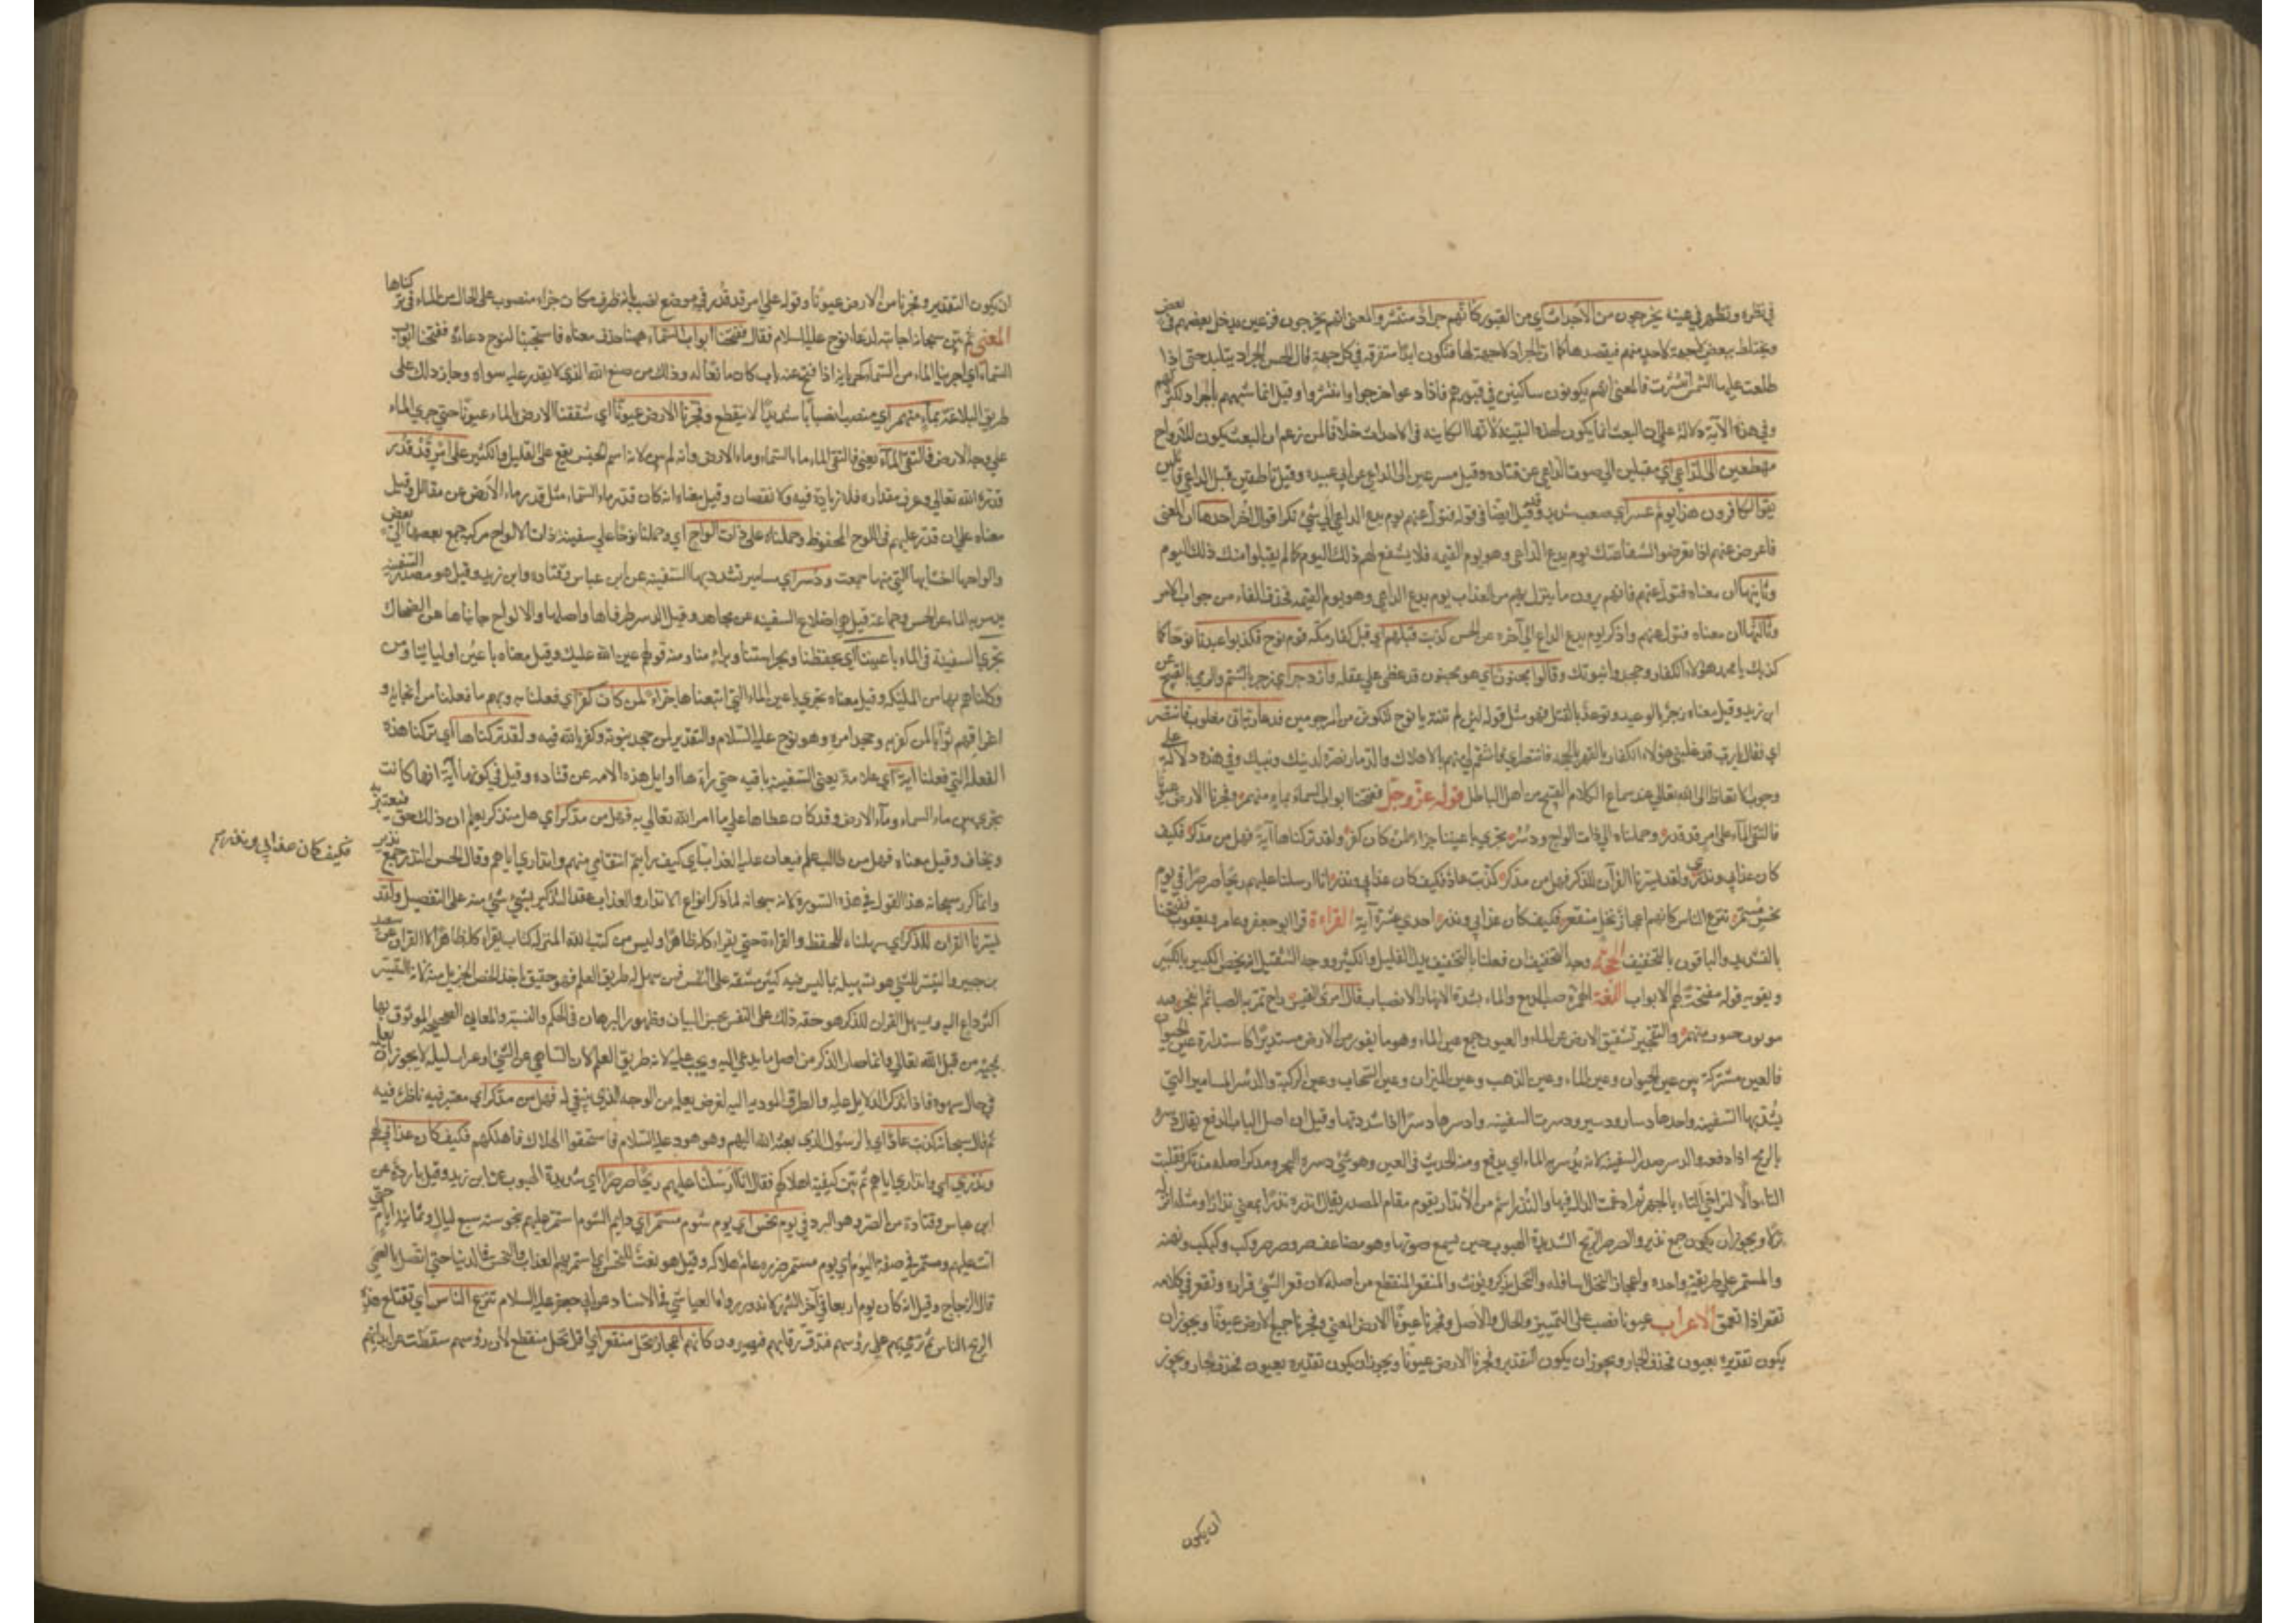 في نظره وتظهر في عينه يخرجون من الاجداث اي من القبور كانهم جراد منتشر والمعنى انهم يخرجون فزعين يدخل بعضهم في بعض
ويختلط بعضهم ببعض لا جهة لاحد منهم فيقصدها كما ان الجراد لا جهة لها فتكون ابدا متفرقة في كل جهة قال الحسن الجراد يتلبد حتى اذا
طلعت عليها الشمس انتشرت فالمعنى انهم يكونون ساكنين في قبورهم فاذا دعوا خرجوا وانتشروا وقيل انما شبههم بالجراد لكثرتهم
وفي هذه الآية دلالة على ان البعث انما يكون لهذه البنية لانها الكاينة في الاجداث خلافا لمن زعم ان البعث يكون للارواح
مهطعين الى الداعي اي مقبلين الى صوت الداعي عن قتاده وقيل مسرعين الى الداعي عن ابي عبيده وقيل ناظرين قبل الداعي قايلين
يقول الكافرون هذا يوم عسر اي صعب شديد وقد قيل ايضا في قوله فتول عنهم يوم يدع الداعي الى شيء نكر اقوال اخر احدها ان المعنى
فاعرض عنهم اذا تعرضوا لشفاعتك يوم يدع الداعي وهو يوم القيمه فلا يشفع لهم ذلك اليوم كما لم يقبلوا منك ذلك اليوم
وثانيها ان معناه فتول عنهم فانهم يرون ما ينزل بهم من العذاب يوم يدع الداعي وهو يوم القيمه فحذف الفاء من جواب الامر
وثالثها ان معناه فتول عنهم واذكر يوم يدع الداع الى آخره عن الحسن كذبت قبلهم اي قبل كفار مكه قوم نوح فكذبوا عبدنا نوحا كما
كذبك يا محمد هؤلاء الكفار وجحدوا نبوتك وقالوا مجنون اي هو مجنون قد غطى على عقله وازدجر اي زجر بالشتم والرمي بالقبيح عن
ابن زيد وقيل معناه زجر بالوعيد وتوعد بالقتل فهو مثل قوله لئن لم تنته يا نوح لتكونن من المرجومين فدعا ربه اني مغلوب فانتصر
اي فقال يا رب قد غلبني هؤلاء الكفار بالقهر لا بالحجه فانتصر اي فانتقم لي منهم بالاهلاك والدمار نصرة لدينك ونبيك وفي هذه دلالة على
وجوب الانقطاع الى الله تعالى عند سماع الكلام القبيح من اهل الباطل قوله عز وجل ففتحنا ابواب السماء بماء منهمر وفجرنا الارض عيونا
فالتقى الماء على امر قد قدر وحملناه على ذات الواح ودسر تجري باعيننا جزاء لمن كان كفر ولقد تركناها آية فهل من مدكر فكيف
كان عذابي ونذر ولقد يسرنا القرآن للذكر فهل من مدكر كذبت عاد فكيف كان عذابي ونذر انا ارسلنا عليهم ريحا صرصرا في يوم
نحس مستمر تنزع الناس كانهم اعجاز نخل منقعر فكيف كان عذابي ونذر احدى عشرة آية القراءة قرا ابو جعفر وابن عامر ويعقوب ففتحنا
بالتشديد والباقون بالتخفيف الحجة وجه التخفيف ان فعلنا بالتخفيف يدل القليل والكثير ووجه التثقيل انه يخص الكثير بالكثير
ويقويه قوله مفتحة لهم الابواب اللغة الهمر صب الدمع والماء بشدة والانهمار الانصباب قال امرؤ القيس راح تمريه الصبا ثم انتحى فيه
والتفجير تشقيق الارض عن الماء والعيون جمع عين الماء وهو ما يفور من الارض مستديرا كاستدارة عين الحيوان
فالعين مشتركة بين عين الحيوان وعين الماء وعين الذهب وعين الميزان وعين السحاب وعين الركبة والدسر المسامير التي
يشد بها السفينه واحدها دسار ودسير ودسرت السفينه وادسرها دسرا اذا شددتها وقيل ان اصل الباب الدفع يقال دسره
بالرمح اذا دفعه والدسر صدر السفينة لانه يدسر به الماء اي يدفع ومنه الحديث في العنبر وهو شيء دسره البحر ومدكر اصله مذتكر فقلبت
التاء دالا لتواخي التاء بالجهر ثم ادغمت الدال فيها والنذر اسم من الانذار يقوم مقام المصدر يقال انذره نذرا بمعنى انذارا ومثله انزله
نزلا ويجوز ان يكون جمع نذير والصرصر الريح الشديدة الهبوب حتى يسمع صوتها وهو مضاعف صر وصرصر وكب وكبكب ونهنه
والمستمر على طريقة واحده واعجاز النخل اسافله والنخل يذكر ويونث والمنقعر المنقطع من اصله لان قعر الشيء قراره وتقعر في كلامه
تقعرا اذا تعمق الاعراب عيونا نصب على التمييز او الحال والاصل وفجرنا عيون الارض المعنى وفجرنا جميع الارض عيونا ويجوز ان
يكون تقديره بعيون فحذف الجار ويجوز ان يكون التقدير وفجرنا الارض عيونا ويجوز ان يكون تقديره بعيون فحذف الجار ويجوز
ان يكون
ان يكون التقدير وفجرنا من الارض عيونا وقوله على امر قد قدر في موضع نصب بانه ظرف مكان جزاء منصوب على الحال من الهاء في تركناها
المعنى ثم بين سبحانه اجابته لدعاء نوح عليه السلام فقال ففتحنا ابواب السماء ههنا حذف معناه فاستجبنا لنوح دعاءه ففتحنا ابواب
السماء اي اجرينا الماء من السماء كجريانه اذا فتح عنه باب كان مانعا له وذلك من صنع الله الذي لا يقدر عليه سواه وجاز ذلك على
طريق البلاغة بماء منهمر اي منصب انصبابا شديدا لا ينقطع وفجرنا الارض عيونا اي شققنا الارض بالماء عيونا حتى جرى الماء
على وجه الارض فالتقى الماء يعني فالتقى الماء ماء السماء وماء الارض وانه لم يثن لانه اسم الجنس يقع على القليل والكثير على امر قد قدر
قدره الله تعالى وعرف مقداره فلا زيادة فيه ولا نقصان وقيل معناه انه كان قدر ماء السماء مثل قدر ماء الارض عن مقاتل وقيل
معناه على امر قدر عليهم في اللوح المحفوظ وحملناه على ذات الواح اي وحملنا نوحا على سفينة ذات الالواح مركب جمع بعضها الى بعض
والواحها اخشابها التي منها جمعت ودسر اي مسامير تشد بها السفينه عن ابن عباس وقتاده وابن زيد وقيل هو صدر السفينه
يدسر به الماء عن الحسن وجماعة وقيل هي اضلاع السفينه عن مجاهد وقيل الدسر طرفاها واصلها والالواح جانباها عن الضحاك
تجري السفينة في الماء باعيننا اي بحفظنا وبحراستنا وبمراى منا ومنه قولهم عين الله عليك وقيل معناه باعين اوليائنا ومن
وكلناهم بها من الملئكه وقيل معناه تجري باعين الماء التي اتبعناها جزاء لمن كان كفر اي فعلنا به وبهم ما فعلنا من انجايه و
اغراقهم ثوابا لمن كفر به وجحد امره وهو نوح عليه السلام والتقدير لمن جحد نبوته وكفر بالله فيه ولقد تركناها اي تركنا هذه
الفعلة التي فعلنا آية اي علامة يعني السفينه باقيه حتى رآها اوايل هذه الامه عن قتاده وقيل في كونها آية انها كانت
تجري بين ماء السماء وماء الارض وقد كان غطاها على ما امر الله تعالى به فهل من مدكر اي هل متذكر يعلم ان ذلك حق فيعتبر به
ويخاف وقيل معناه فهل من طالب علم فيعان عليه العذاب اي كيف رايتم انتقامي منهم وانذاري اياهم وقال الحسن النذر جمع نذير
فكيف كان عذابي ونذر
وانما كرر سبحانه هذا القول في هذه السورة لانه سبحانه لما ذكر انواع الانذار والعذاب عقد التذكير بشيء شيء منه على التفصيل ولقد
يسرنا القران للذكر اي سهلناه للحفظ والقراءة حتى يقراء كله ظاهرا وليس من كتب الله المنزلة كتاب يقراء كله ظاهرا الا القران عن سعيد
بن جبير والتيسير للشيء هو تسهيله بما ليس فيه كثير مشقه على النفس فمن سهل له طريق العلم فهو حقيق باخذ الحظ الجزيل منه لانه التيسير
اكبر داع اليه وتسهيل القران للذكر هو خفة ذلك على النفس بحسن البيان وظهور البرهان في الحكم والسنية والمعاني الصحيحه الموثوق بها
لمجيئه من قبل الله تعالى وانما صار الذكر من اصل ما يدعى اليه ويحث عليه لانه طريق العلم لان الساهي عن الشيء او عن دليله لا يجوز ان يعلمه
في حال سهوه فاذا تذكر الدلايل عليه والطرق المودية اليه تعرض لعلمه من الوجه الذي ينبغي له فهل من مدكر اي معتبر فيه ناظر فيه
ثم قال سبحانه كذبت عاد اي بالرسول الذي بعثه الله اليهم وهو هود عليه السلام فاستحقوا الهلاك فاهلكهم فكيف كان عذابي لهم
ونذري اي وانذاري اياهم ثم بين كيفية اهلاكهم فقال انا ارسلنا عليهم ريحا صرصرا اي شديدة الهبوب عن ابن زيد وقيل باردة عن
ابن عباس وقتادة من الصر وهو البرد في يوم نحس اي يوم شوم مستمر اي دايم الشوم استمر عليهم بنحوسته سبع ليال وثمانية ايام حتى
اتت عليهم ومستمر في صفة اليوم اي يوم مستمر ضرره عام هلاكه وقيل هو نعت للنحس اي استمر بهم العذاب والنحس في الدنيا حتى اتصل بالعقبى
قال الزجاج وقيل انه كان يوم اربعا في آخر الشهر لا تدور رواه العياشي بالاسناد عن ابي جعفر عليه السلام تنزع الناس اي تقتلع هذه
الريح الناس ثم ترمي بهم على رؤسهم فتدق رقابهم فيصيرون كانهم اعجاز نخل منقعر اي اصل نخل منقطع لان رؤسهم سقطت عن ابدانهم